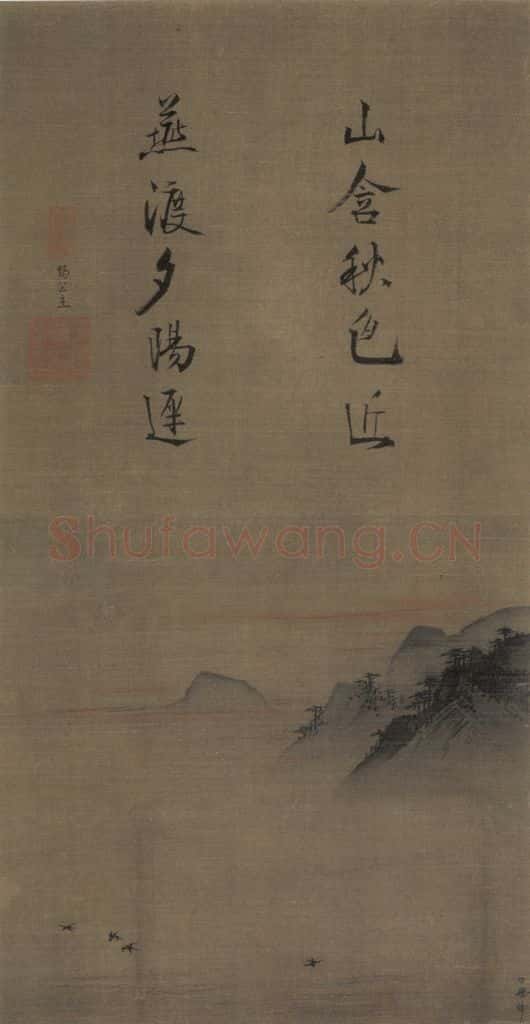 山含秋色近
燕渡夕陽遲
賜公主
Shufawang.CN